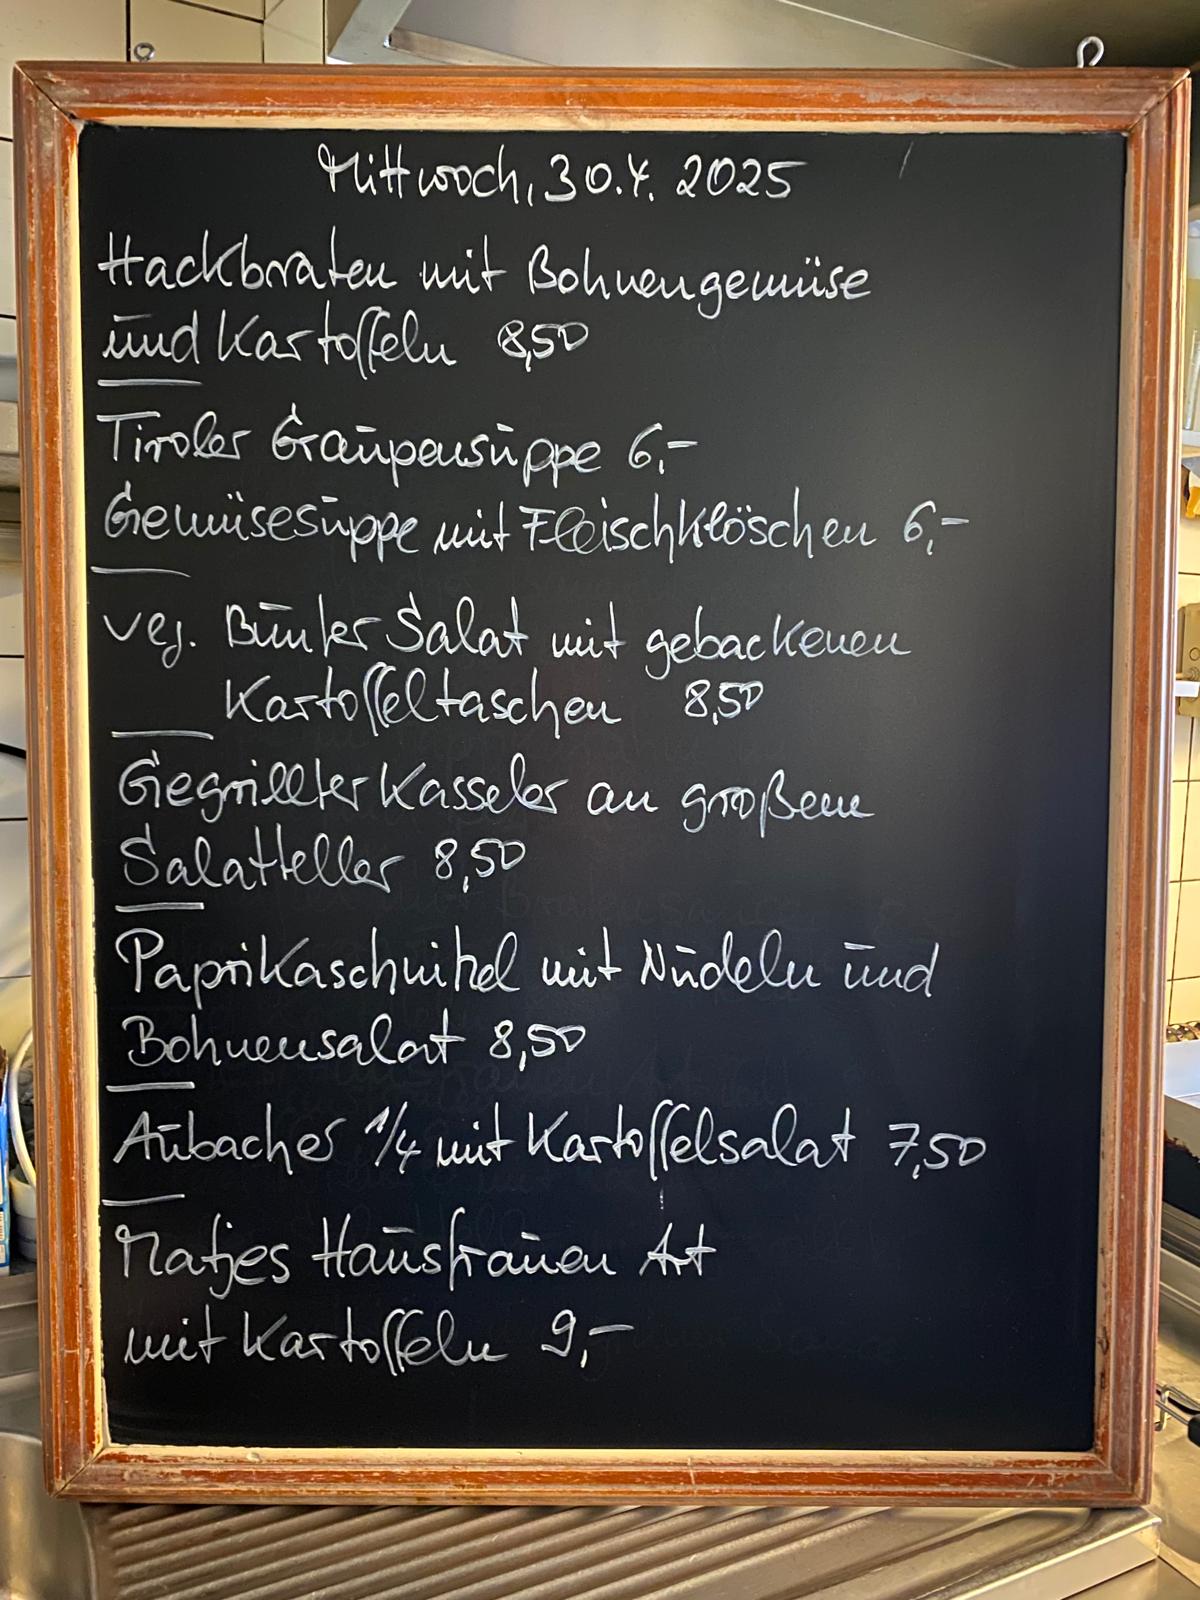 Mittwoch, 30.4. 2025
Hackbraten mit Bohnengemüse
und Kartoffeln 8,50
Tiroler Graupensuppe 6,-
Gemüsesuppe mit Fleischklöschen 6,-
veg. Bunter Salat mit gebackenen
Kartoffeltaschen 8,50
Gegrillter Kasseler an großem
Salatteller 8,50
Paprikaschnitzel mit Nudeln und
Bohnensalat 8,50
Aubacher 1/4 mit Kartoffelsalat 7,50
Matjes Hausfrauen Art
mit Kartoffeln 9,-